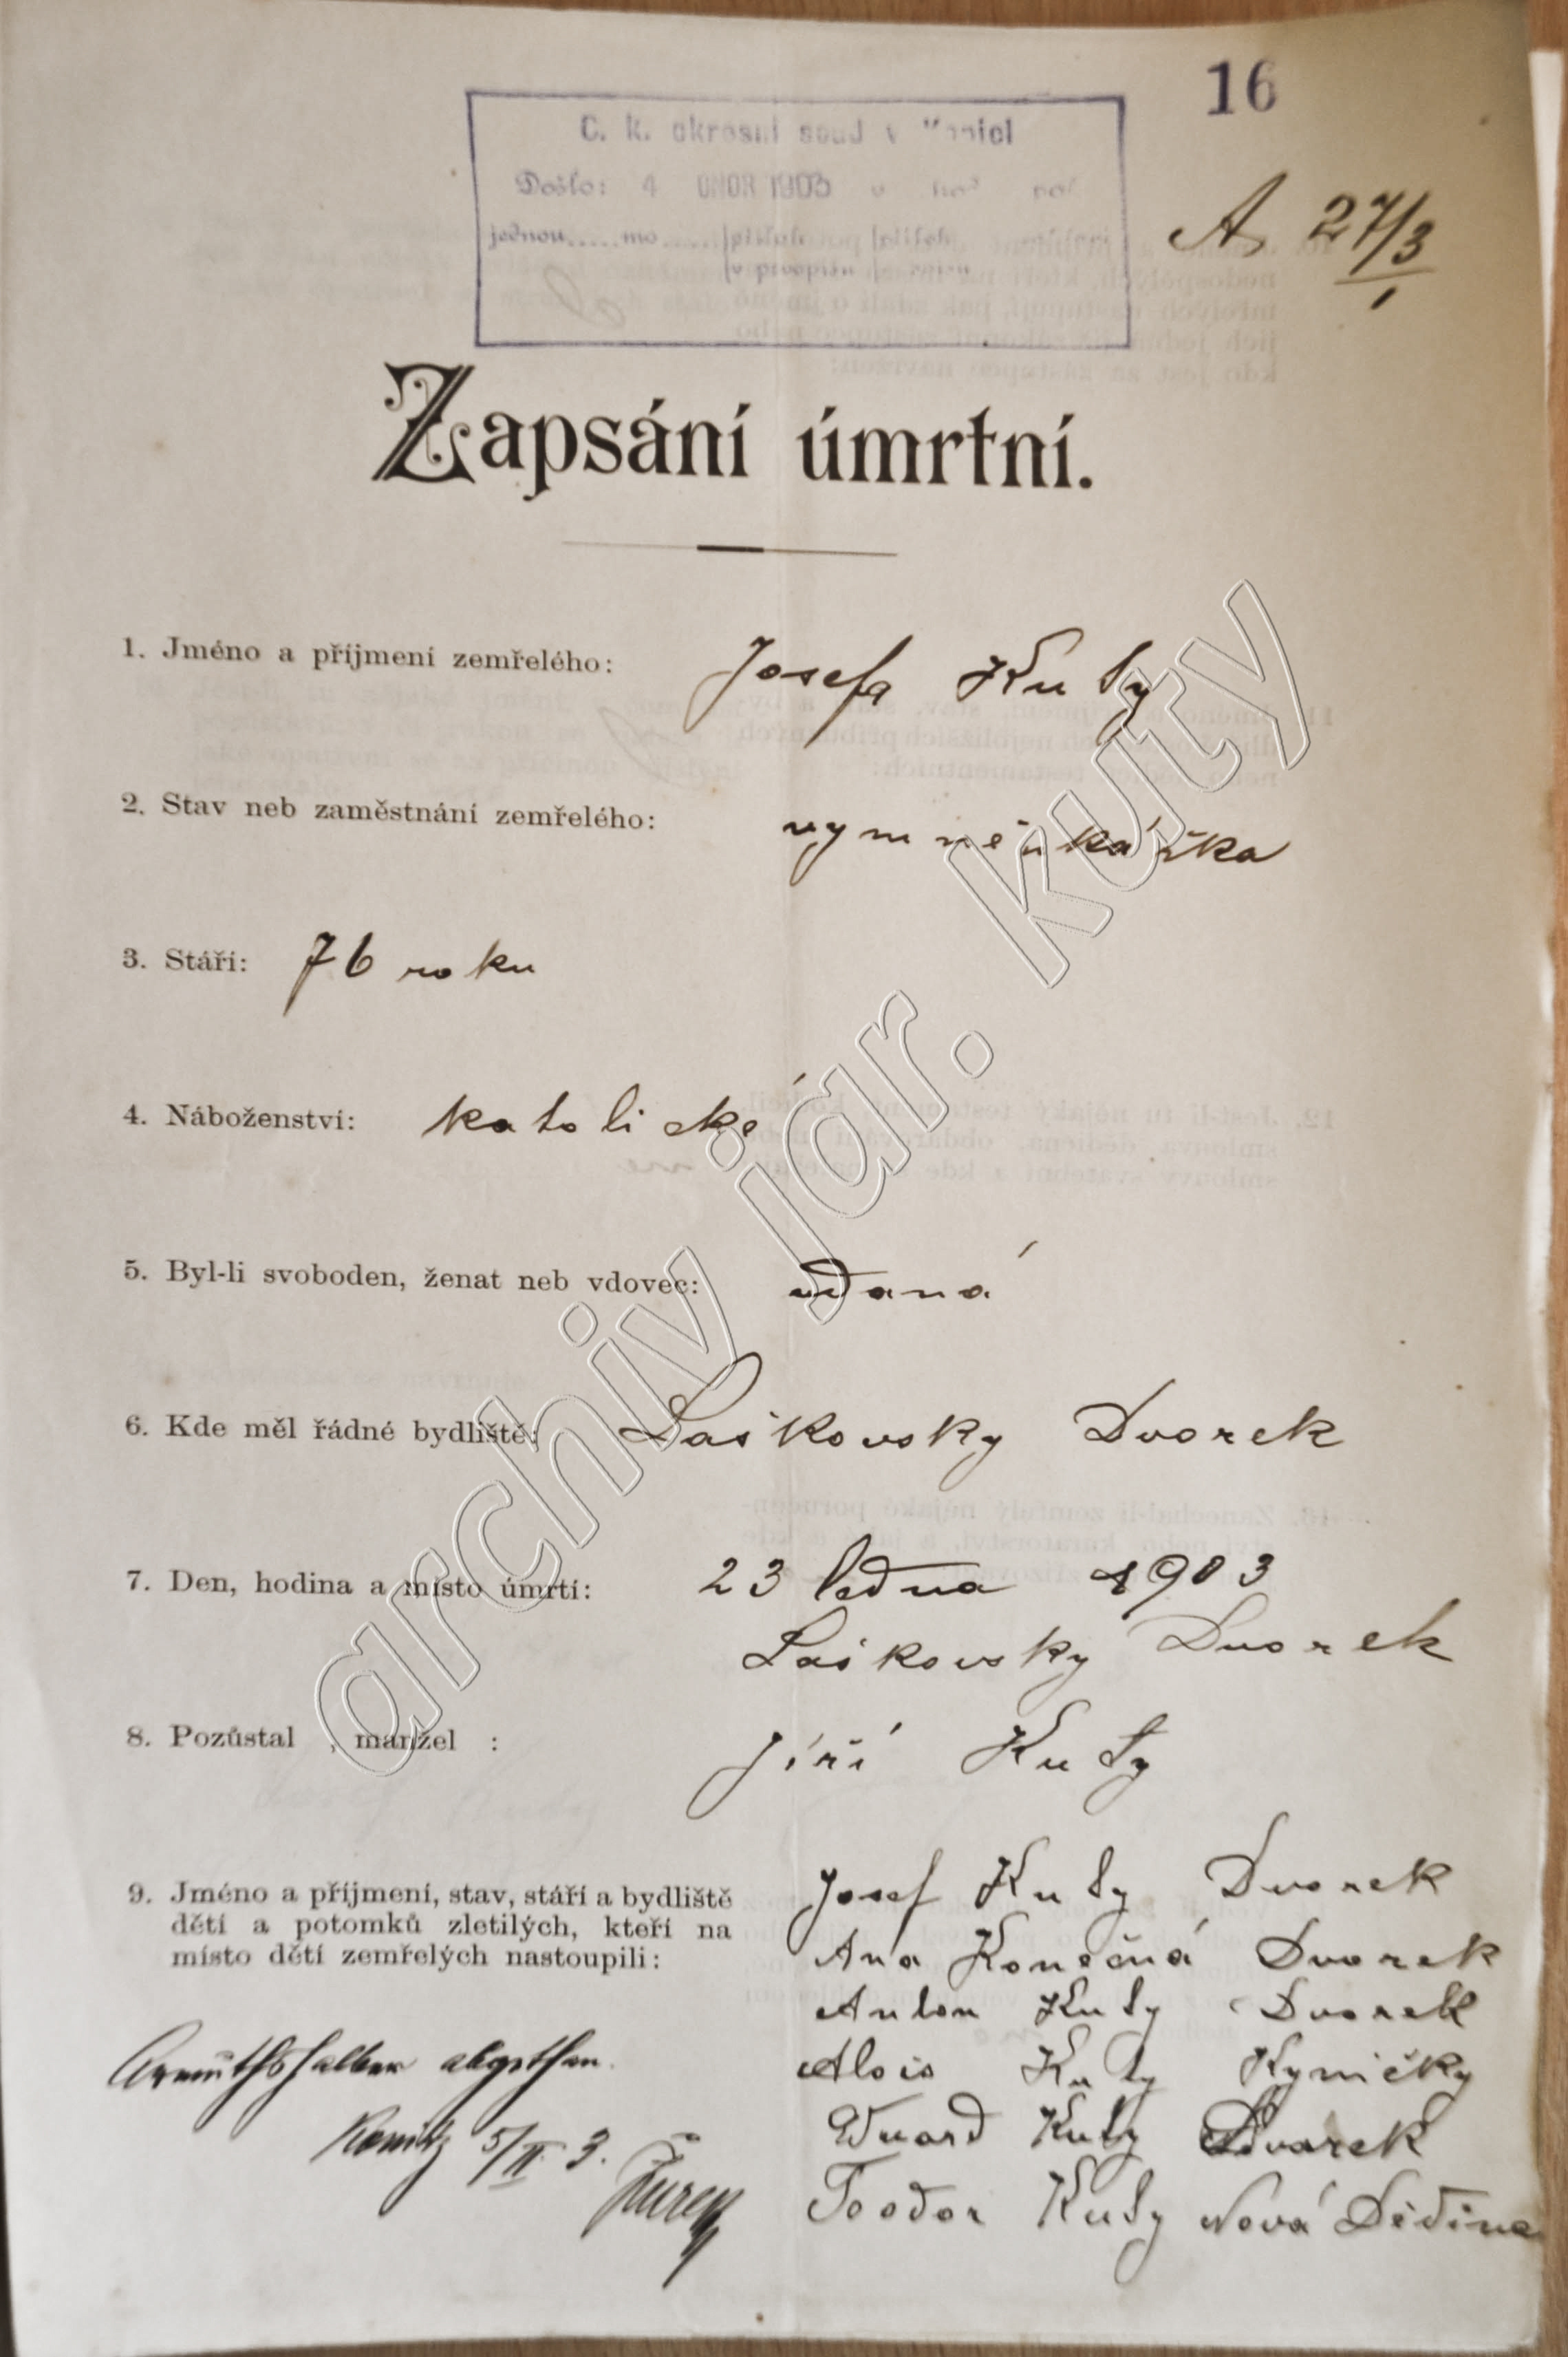 16
C. k. okresní soud v Konici
Došlo: 4 ÚNOR 1903 v hod. pol.
jednou..... mo..... příloh příloh
v prvopisu
A 27/3
1
Zapsání úmrtní.
1. Jméno a příjmení zemřelého: Josefa Kuty
2. Stav neb zaměstnání zemřelého: vyměnkářka
3. Stáří: 76 roku
4. Náboženství: katolické
5. Byl-li svoboden, ženat neb vdovec: vdaná
6. Kde měl řádné bydliště: Laškovsky Dvorek
7. Den, hodina a místo úmrtí: 23 ledna 1903
Laškovsky Dvorek
8. Pozůstal , manžel : Jíří Kuty
9. Jméno a příjmení, stav, stáří a bydliště
dětí a potomků zletilých, kteří na
místo dětí zemřelých nastoupili:
Josef Kuty Dvorek
Ana Konečná Dvorek
Anton Kuty Dvorek
Alois Kuty Kyničky
Eduard Kuty Dvorek
Teodor Kuty Nová Dědina
Armuthshalber abgethan.
Konitz 5/II 3.
archiv jar. kuty